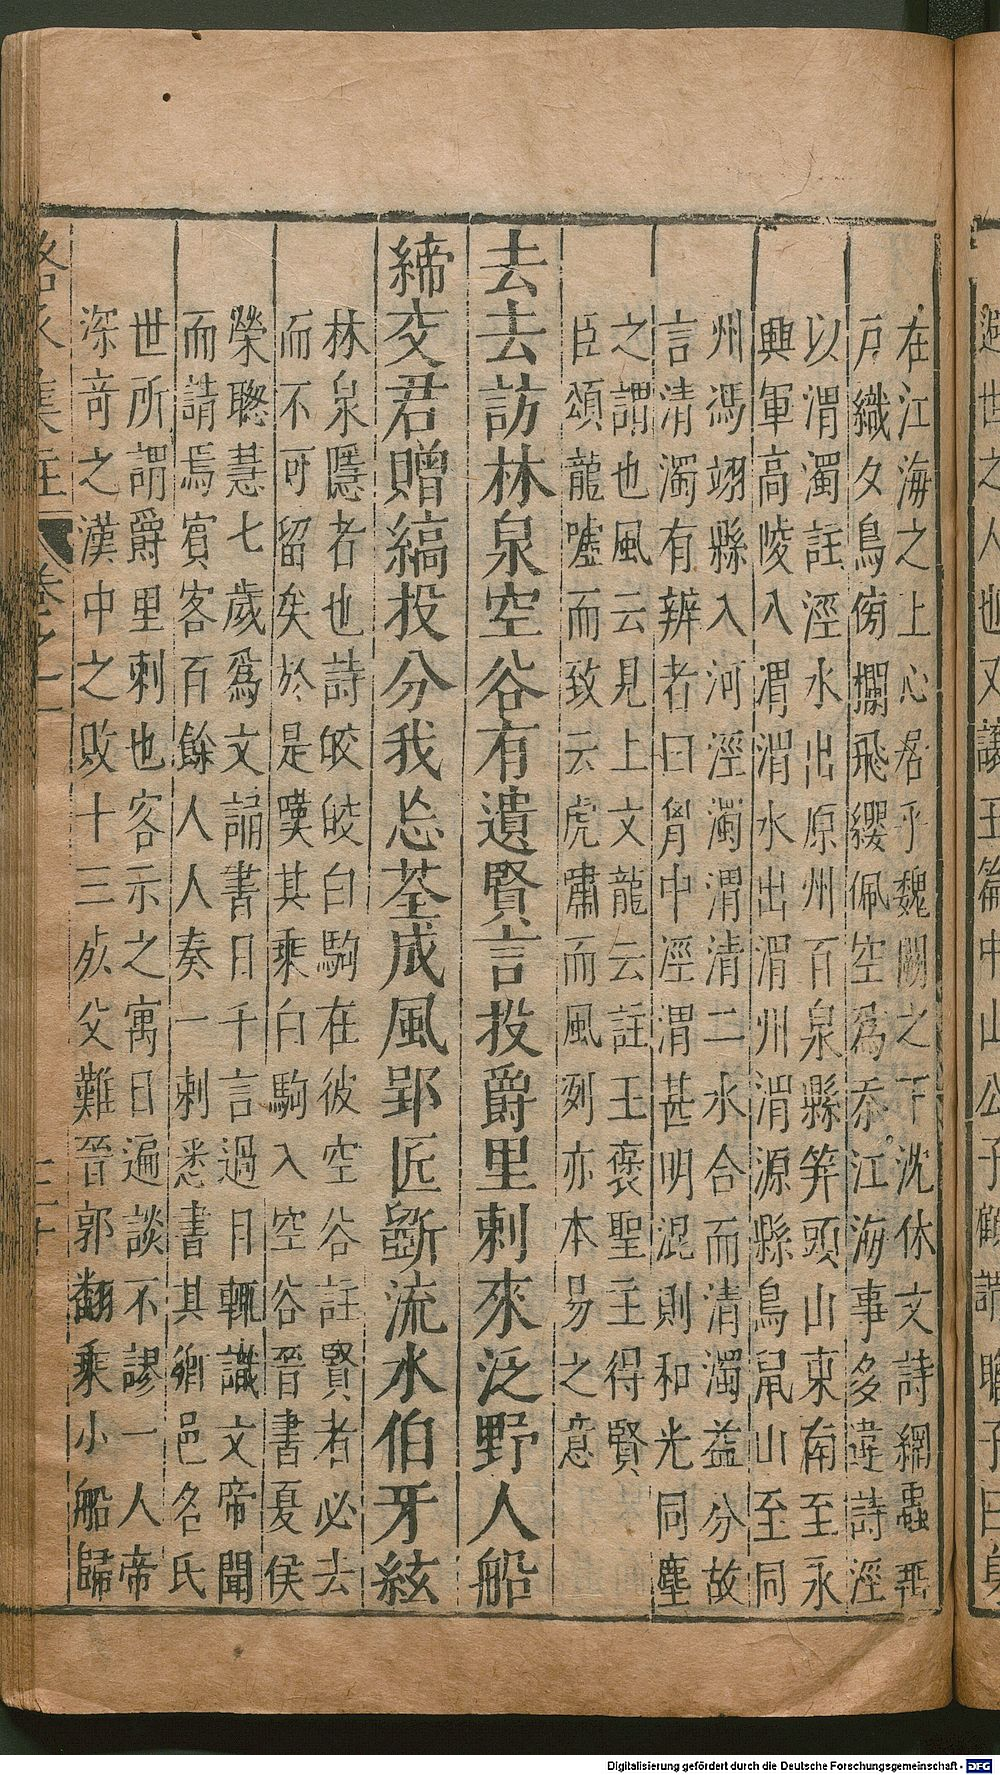 在江海之上心居乎魏闕之下沈休文詩網蟲垂
戸織夕鳥傍櫩飛纓佩空爲忝江海事多違詩涇
以渭濁註涇水出原州百泉縣笄頭山東南至永
興軍高陵入渭渭水出渭州渭源縣鳥鼠山至同
州馮翊縣入河涇濁渭清二水合而清濁益分故
言清濁有辨者曰胷中涇渭甚明混則和光同塵
之謂也風云見上文龍云註王褒聖主得賢
臣頌龍噓而致云虎嘯而風列亦本易之意
去去訪林泉空谷有遺賢言投爵里刺來泛野人船
締交君贈縞投分我忘荃成風郢匠斵流水伯牙絃
林泉隱者也詩皎皎白駒在彼空谷註賢者必去
而不可留矣於是嘆其乘白駒入空谷晉書夏侯
榮聰慧七歲爲文誦書日千言過目輒識文帝聞
而請焉賓客百餘人人奏一刺悉書其鄉邑名氏
世所謂爵里刺也客示之寓目遍談不謬一人帝
深奇之漢中之敗十三歿父難晉郭翻乘小船歸
駱丞集註 卷之一 三十
過世之人也又讓王篇中山公子
Digitalisierung gefördert durch die Deutsche Forschungsgemeinschaft - DFG